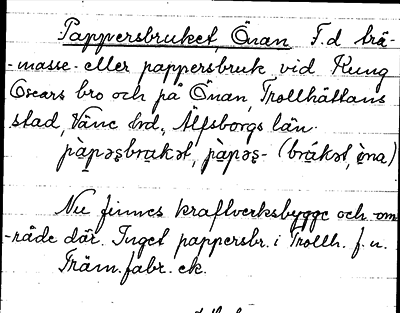 Pappersbruket, Önan T.d trä-
-masse- eller pappersbruk vid Kung
Oscars bro och på Önan, Trollhättans
stad,Väne hrd, Älfsborgs län.
pàpəʂbrʉkət, pàpəʂ- (brʉ́kət, ò̀na)
Nu finnes kraftverksbygge och om-
-råde där. Inget pappersbr. i Trollh. f. n.
Träm. fabr. ek.